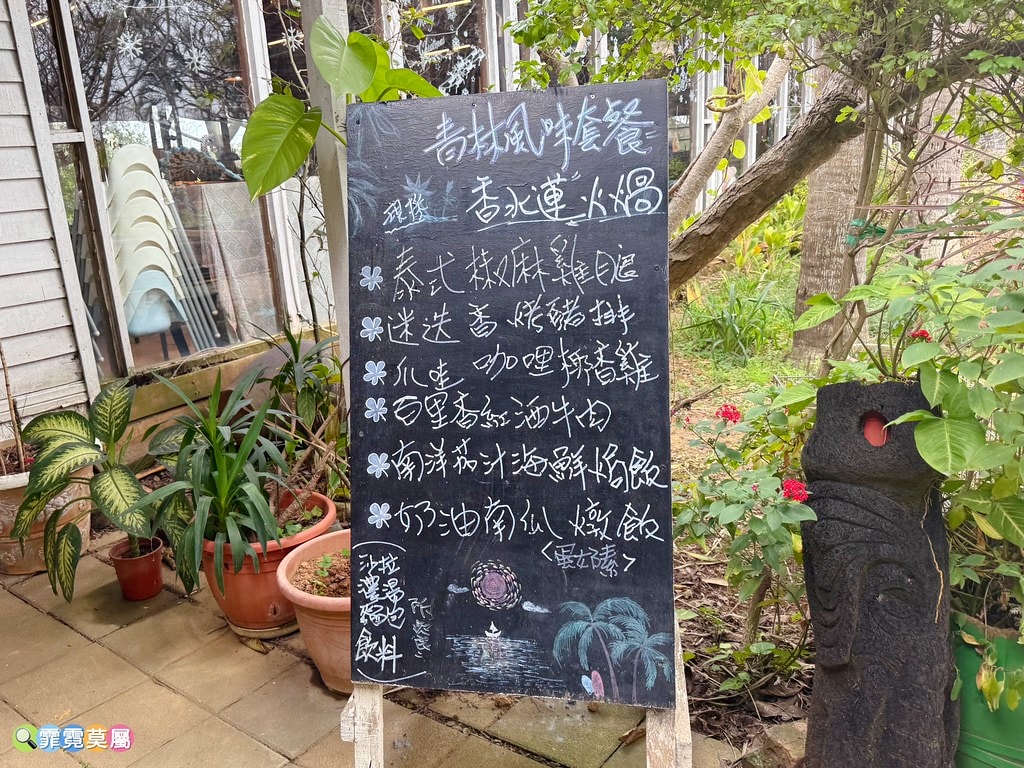 青林風味套餐
香水蓮火鍋
泰式椒麻雞腿
迷迭香烤豬排
爪哇咖哩檸香雞
百里香紅酒牛肉
南洋茄汁海鮮焗飯
奶油南瓜燉飯
<蛋奶素>
沙拉
濃湯
飲料
霏霓莫屬